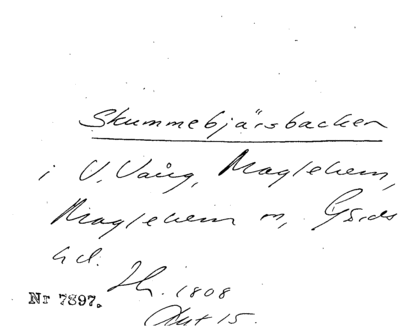 Skummebjärsbacken
i V. Vång, Maglehem,
Maglehem sn, Gärds
hd.
Sk. 1808
Akt 15.
Nr 7897.